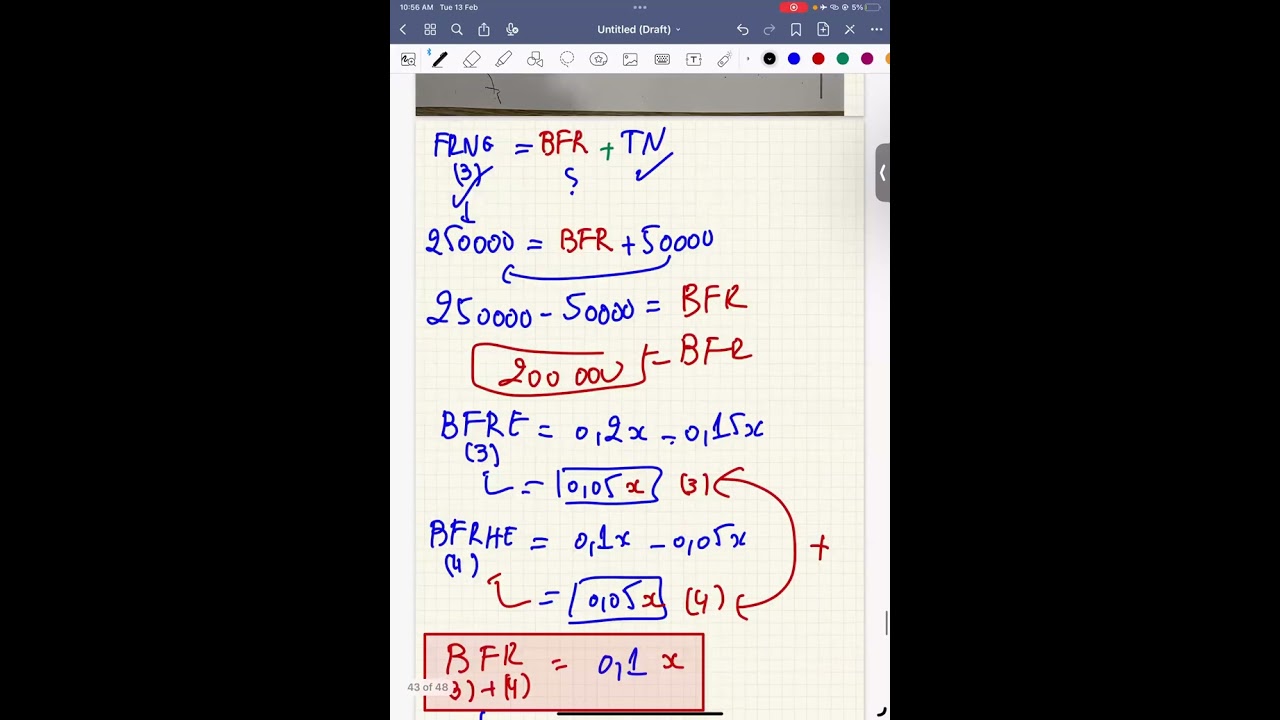 10:56 AM Tue 13 Feb 5%
Untitled (Draft)
FRNG = BFR + TN
(3) ?
250000 = BFR + 50000
250000 - 50000 = BFR
200 000 = BFR
BFRE = 0,2x - 0,15x
(3)
= 0,05x (3)
BFRHE = 0,1x - 0,05x
(4) +
= 0,05x (4)
BFR = 0,1 x
3)+(4)
43 of 48